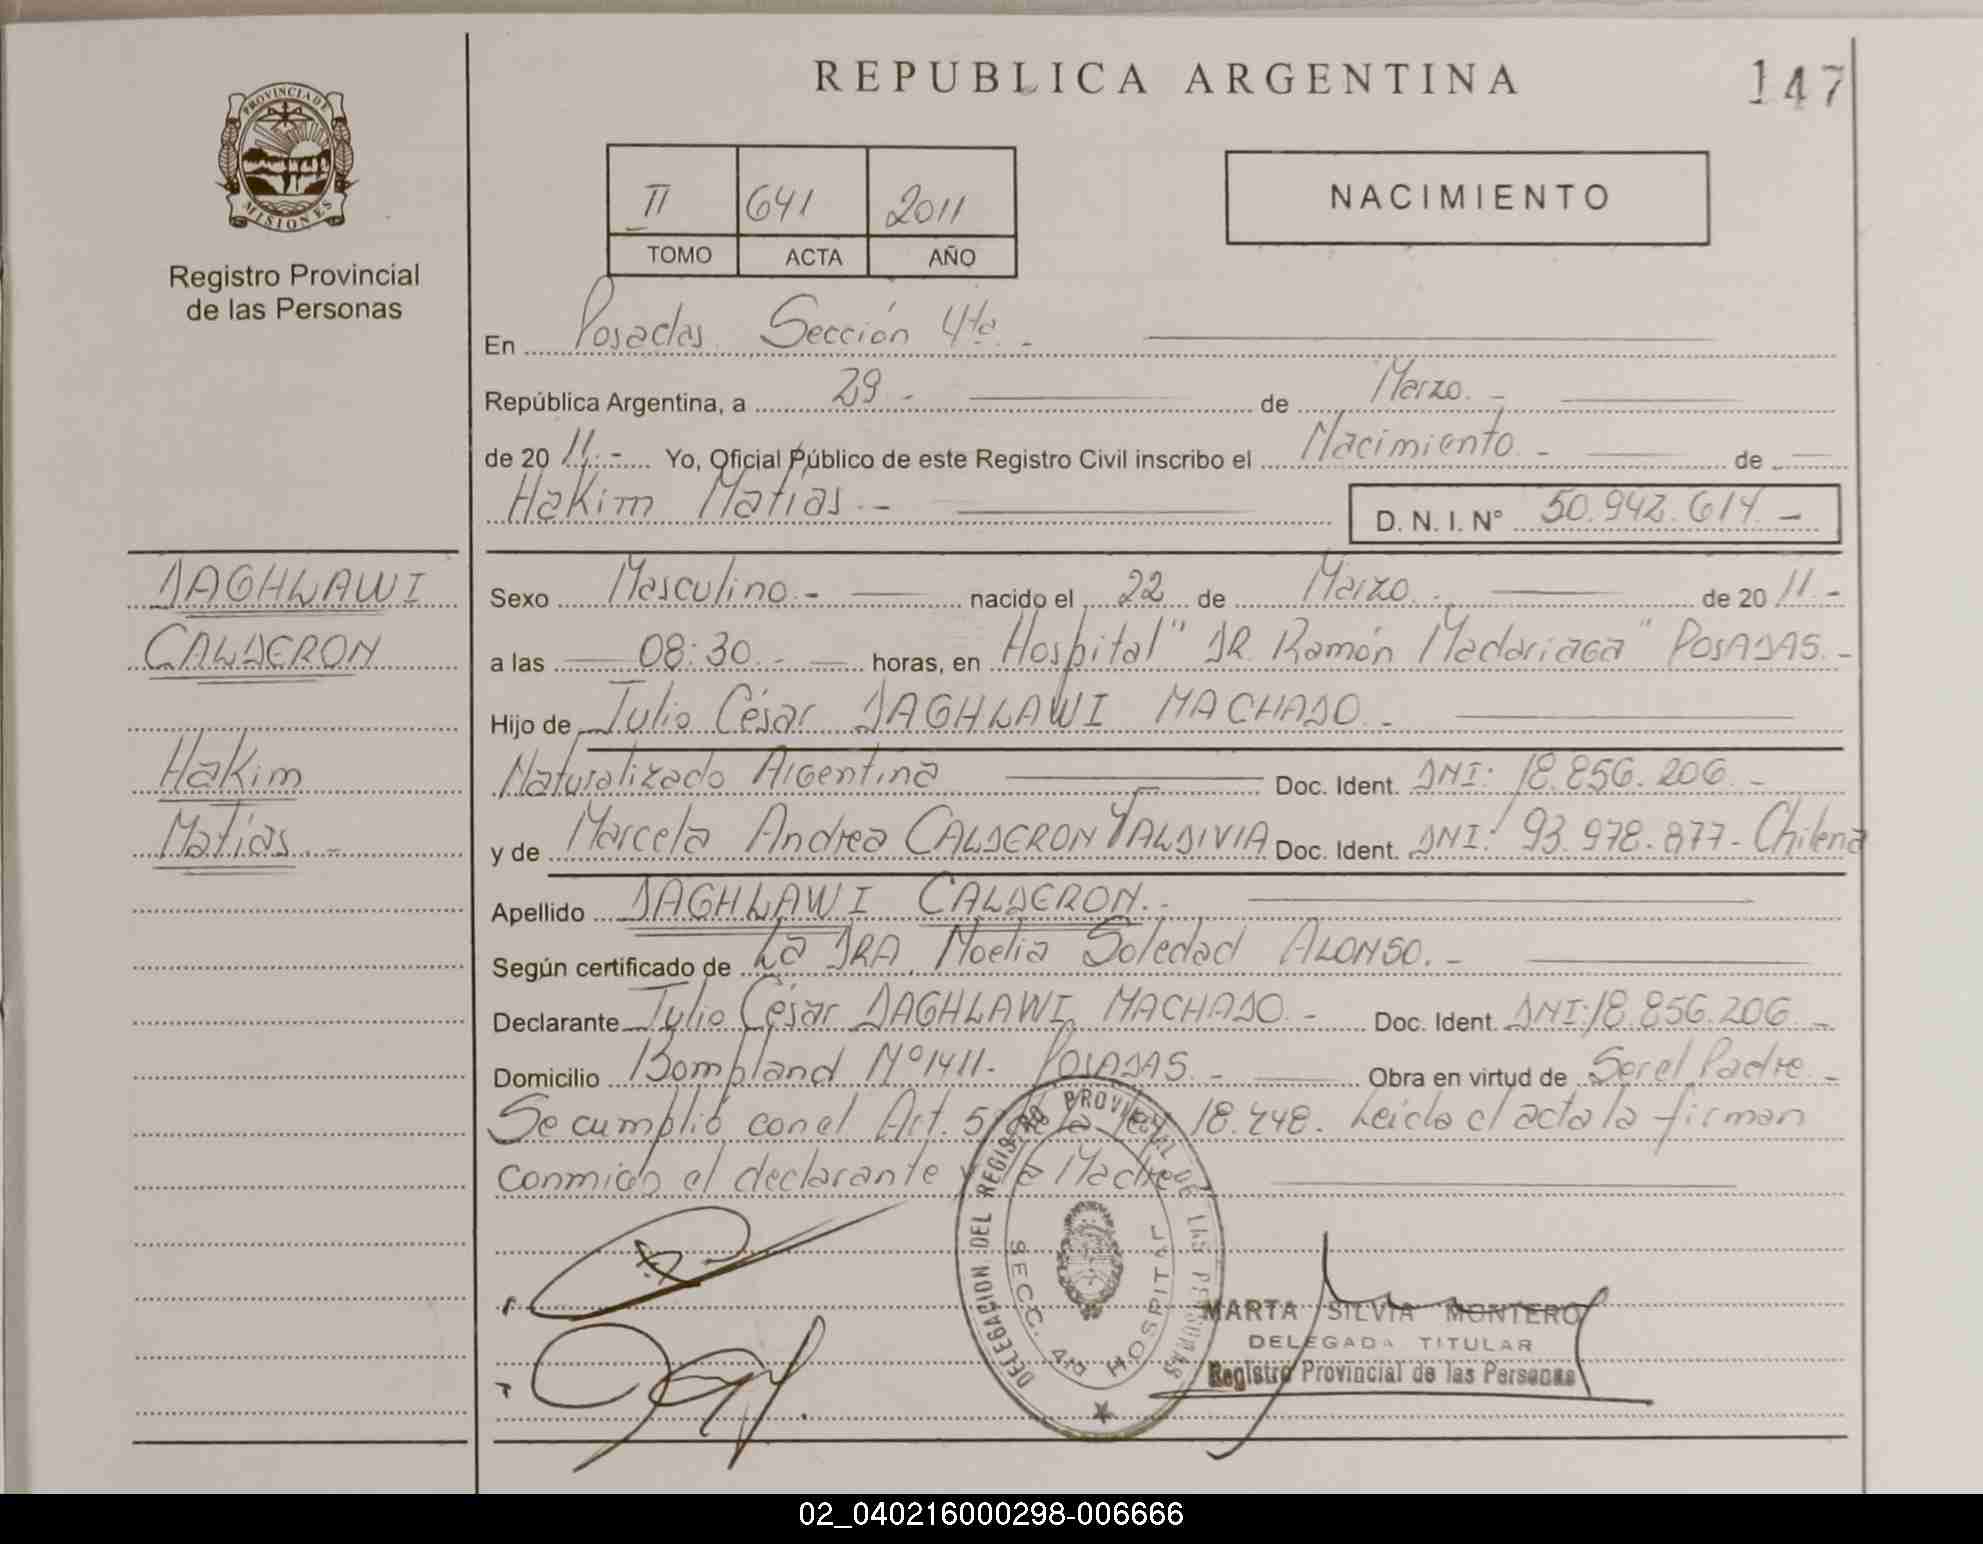 REPUBLICA ARGENTINA
147
PROVINCIA DE
MISIONES
Registro Provincial
de las Personas
II 641 2011
TOMO ACTA AÑO
NACIMIENTO
En Posadas Sección 4ta. -
República Argentina, a 29 - de Marzo. -
de 20 11. - Yo, Oficial Público de este Registro Civil inscribo el Nacimiento. - de
Hakim Matías. - D. N. I. N° 50.942.614 -
DAGHLAWI
CALDERON
Hakim
Matías. -
Sexo Masculino. - nacido el 22 de Marzo. - de 20 11. -
a las 08:30. - horas, en Hospital "DR. Ramón Madariaga" POSADAS. -
Hijo de Julio César DAGHLAWI MACHADO. -
Naturalizado Argentina Doc. Ident. DNI: 18.856.206. -
y de Marcela Andrea CALDERON VALDIVIA Doc. Ident. DNI: 93.978.877 - Chilena
Apellido DAGHLAWI CALDERON. -
Según certificado de La DRA. Noelia Soledad ALONSO. -
Declarante Julio César DAGHLAWI MACHADO. - Doc. Ident. DNI: 18.856.206. -
Domicilio Bompland N° 1411. POSADAS. - Obra en virtud de Ser el Padre. -
Se cumplió con el Art. 5 de la Ley 18.248. Leida el acta la firman
conmigo el declarante y la Madre
DELEGACION DEL REGISTRO PROVINCIAL DE LAS PERSONAS
SECC. 4ta HOSPITAL
MARTA SILVIA MONTERO
DELEGADA TITULAR
Registro Provincial de las Personas
02_040216000298-006666